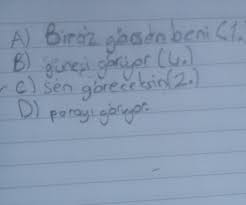 A) Biraz görsen beni (1.
B) güneşi görüyor (4.)
C) sen göreceksin (2.)
D) parayı görüyor.